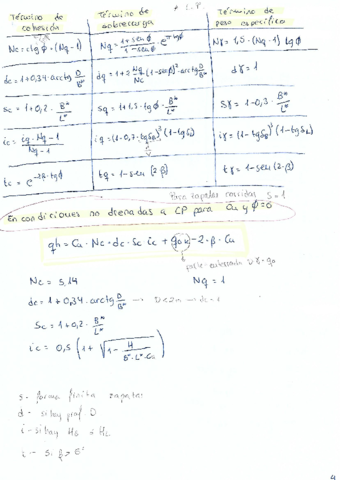 * L.P
Término de cohesión | Término de sobrecarga | Término de peso específico
Nc = ctg ϕ · (Nq - 1) | Nq = (1 + sen ϕ)/(1 - sen ϕ) e^(π tg ϕ) | Nγ = 1,5 · (Nq - 1) tg ϕ
dc = 1 + 0,34 · arctg D/B* | dq = 1 + 2 Nq/Nc (1 - sen ϕ)² · arctg D/B* | dγ = 1
sc = 1 + 0,2 · B*/L* | sq = 1 + 1,5 · tg ϕ · B*/L* | sγ = 1 - 0,3 · B*/L*
ic = (iq · Nq - 1)/(Nq - 1) | iq = (1 - 0,7 · tg δB)³ (1 - tg δL) | iγ = (1 - tg δB)³ (1 - tg δL)
tc = e^(-2β · tg ϕ) | tq = 1 - sen (2·β) | tγ = 1 - sen (2·β)
Para zapatas corridas s = 1
En condiciones no drenadas a CP para Cu y ϕ = 0
qh = Cu · Nc · dc · sc ic + qok - 2 · β · Cu
Nc = 5,14
Nq = 1
dc = 1 + 0,34 · arctg D/B*
Sc = 1 + 0,2 · B*/L*
ic = 0,5 (1 + √(1 - H/(B* · L* · Cu)))
s - forma finita zapatas
d - si hay prof. D
i - si hay HB o HL